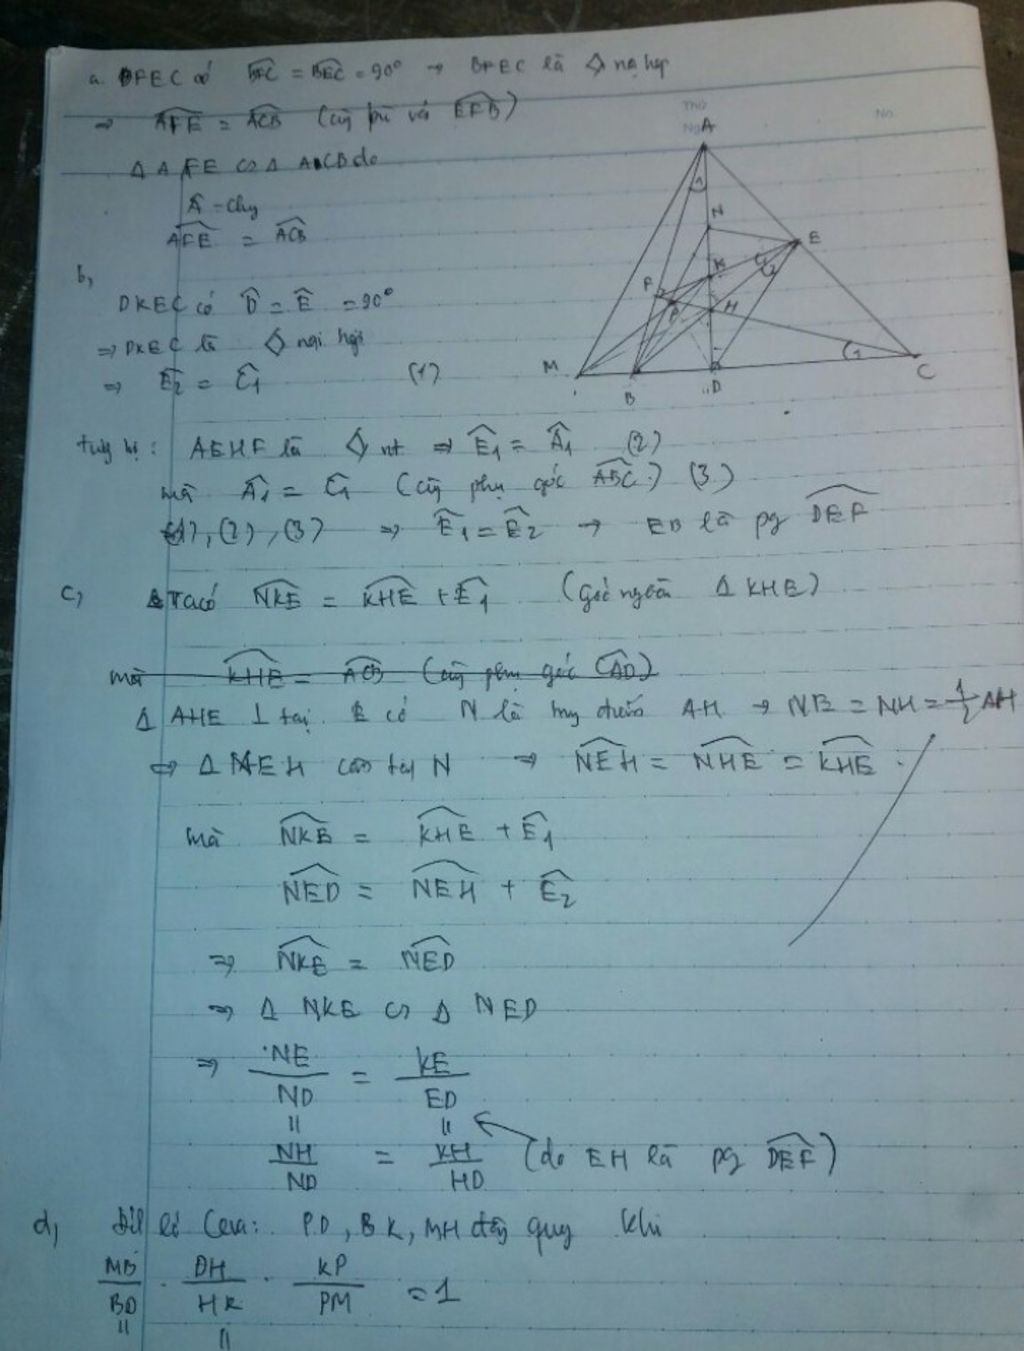 a. BFEC có BFC = BEC = 90° → BFEC là ◇ nội tiếp
Thứ
Ngày
No.
⇒ AFE = ACB (cùng bù với EFB)
Δ AFE ∽ Δ ACB do
Â - chung
AFE = ACB
A
N
K
E
F
P
H
M
B
D
C
b,
DKEC có D̂ = Ê = 90°
⇒ DKEC là ◇ nội tiếp
⇒ Ê2 = Ĉ1 (1)
tương tự: AEHF là ◇ nt ⇒ Ê1 = Â1 (2)
mà Â1 = Ĉ1 (cùng phụ góc ABC) (3)
(1), (2), (3) ⇒ Ê1 = Ê2 → EB là pg DEF
c, Ta có NKE = KHE + Ê1 (góc ngoài Δ KHE)
mà KHE = ACB (cùng phụ góc CAD)
Δ AHE ⊥ tại E có N là trung điểm AH → NE = NH = 1/2 AH
⇒ Δ NEH cân tại N ⇒ NEH = NHE = KHE
mà NKE = KHE + Ê1
NED = NEH + Ê2
⇒ NKE = NED
⇒ Δ NKE ∽ Δ NED
⇒ NE/ND = KE/ED
NH/ND = KH/HD (do EH là pg DEF)
d, Định lí Ceva: PD, BK, MH đồng quy khi
MB/BD . DH/HK . KP/PM = 1